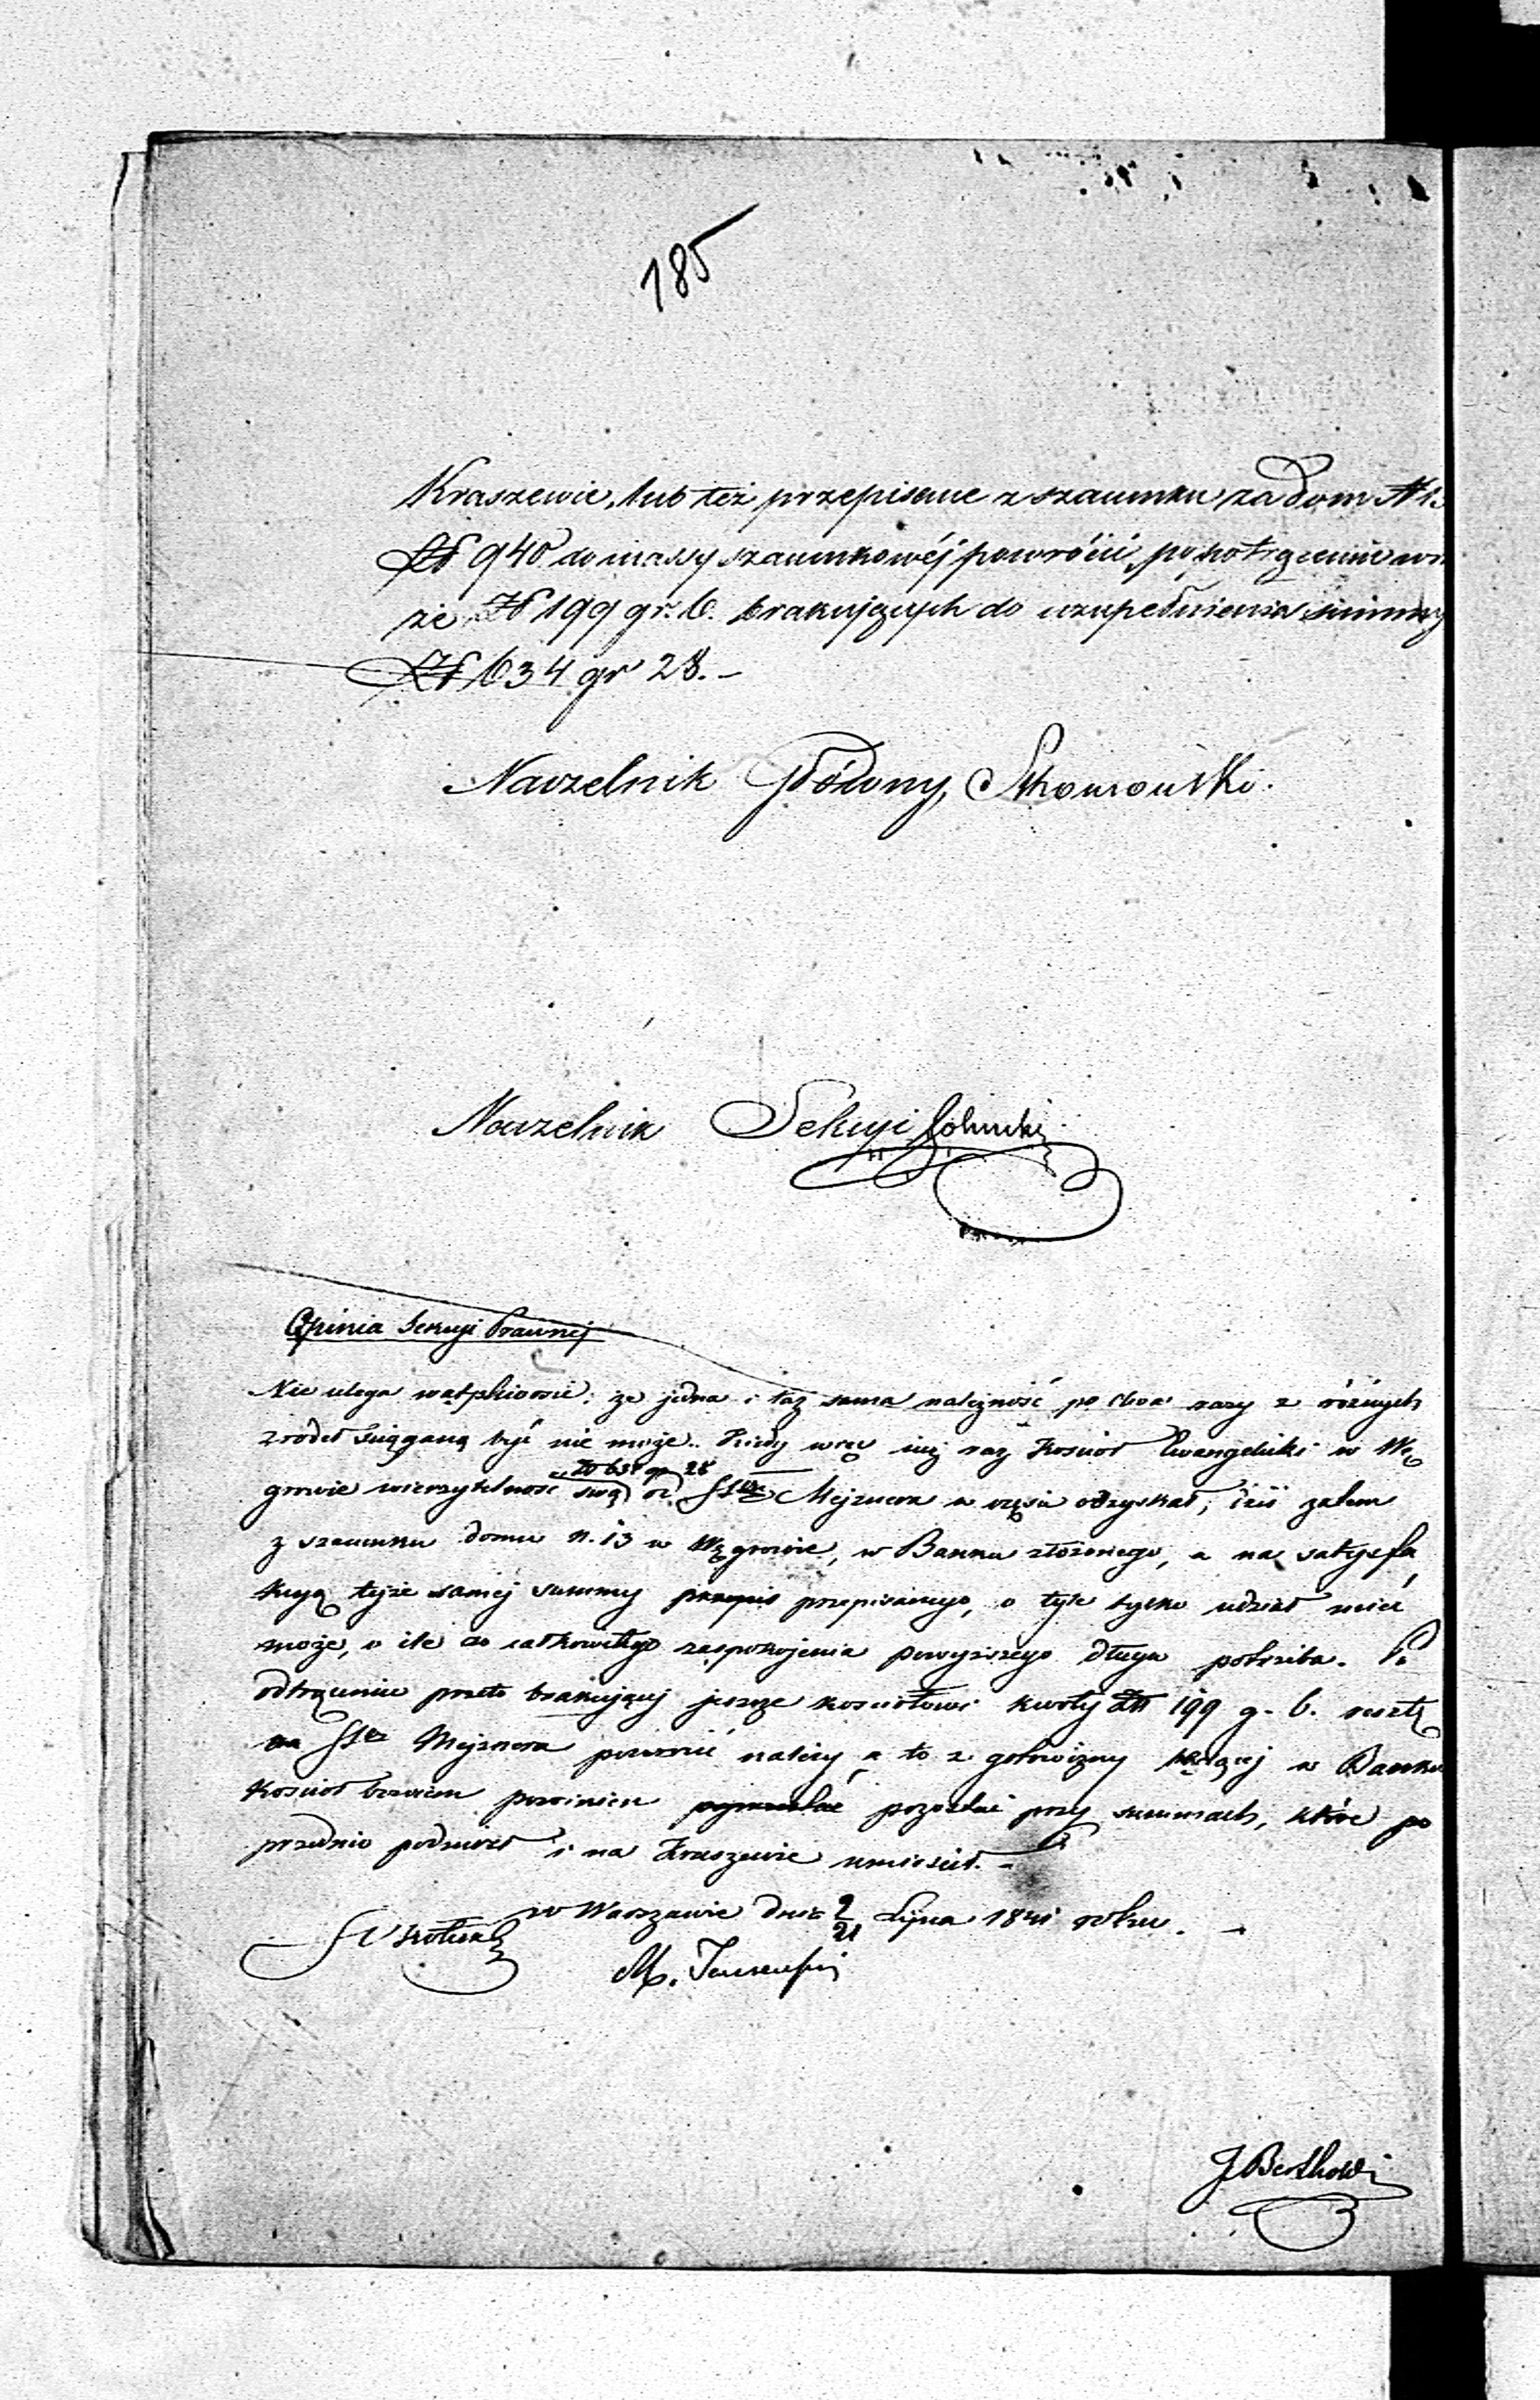 185
Kraszewie, lub też przepisane z szacunku za dom N 13
Zł 940 do massy szacunkowéj powrócić, po potrąceniu
że Zł 199 gr. 6. brakujących do uzupełnienia summy
Zł 634 gr 28. –
Naczelnik Główny,
Naczelnik Sekcyi
Opinia Sekcyi Prawnej
Nie ulega wątpliwości, że jedna i taż sama należność po dwa razy z różnych
źrodeł ściąganą być nie może. Kiedy więc już raz Kościoł Ewangelicki w Wę
Zł 634 gr 28
growie wierzytelność swą od SSrów Mejznera w części odzyskał, iżii zatem
z szacunku domu N. 13 w Węgrowie, w Banku złożonego, a na satysfa
kcyą tejże samej summy przepisanego, o tyle tylko udział mieć
może, o ile do całkowitego zaspokojenia powyższego długu potrzeba. Po
odtrąceniu przeto brakującej jeszcze kościołowi kwoty Zł 199 g. 6. resztę
na SSrów Mejznera powrócić należy, a to z gotowizny będącej w Banku
Kościoł bowiem powinien pozostać przy summach, które po
przednio podniósł i na Kraszewie umieścił. –
w Warszawie dnia 9/21 Lipca 1841 roku. –
M.
J